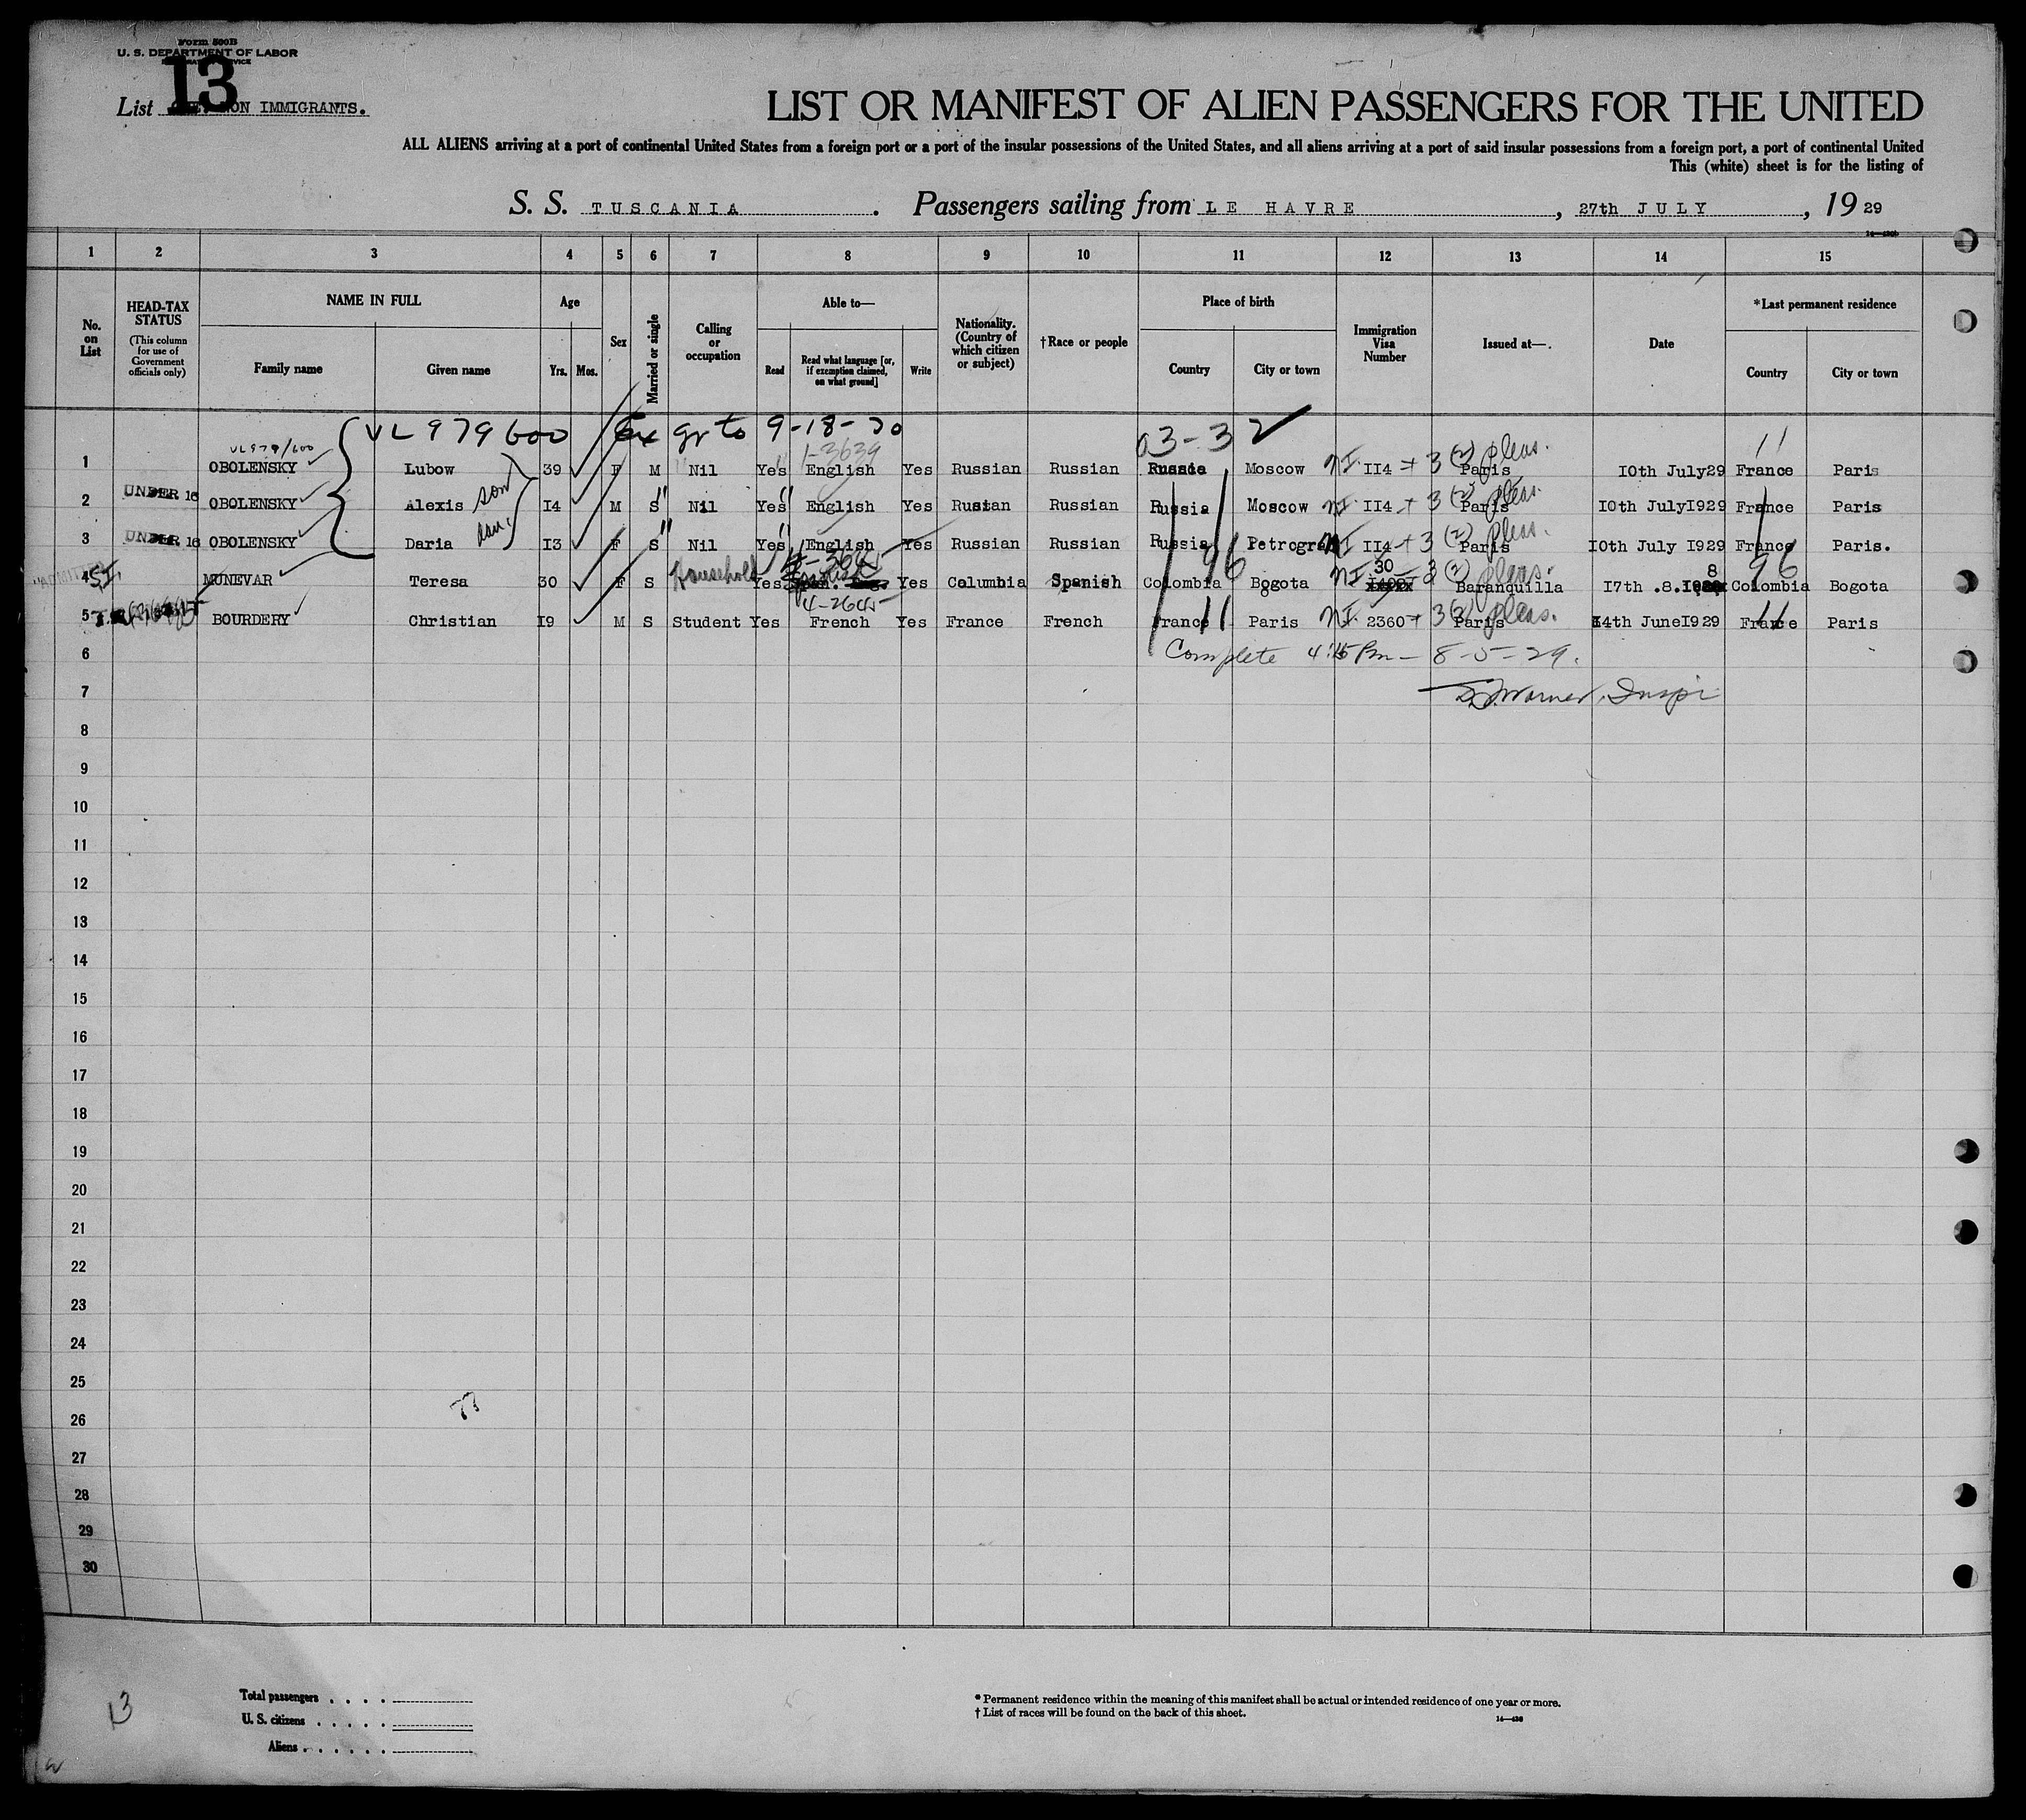 Form 500B
U. S. DEPARTMENT OF LABOR
13
List NON IMMIGRANTS.
LIST OR MANIFEST OF ALIEN PASSENGERS FOR THE UNITED
ALL ALIENS arriving at a port of continental United States from a foreign port or a port of the insular possessions of the United States, and all aliens arriving at a port of said insular possessions from a foreign port, a port of continental United
This (white) sheet is for the listing of
S. S. TUSCANIA. Passengers sailing from LE HAVRE, 27th JULY, 19 29
1 2 3 4 5 6 7 8 9 10 11 12 13 14 15
No. on List
HEAD-TAX STATUS
(This column for use of Government officials only)
NAME IN FULL
Family name
Given name
Age
Yrs. Mos.
Sex
Married or single
Calling or occupation
Able to—
Read
Read what language [or, if exemption claimed, on what ground]
Write
Nationality. (Country of which citizen or subject)
†Race or people
Place of birth
Country
City or town
Immigration Visa Number
Issued at—.
Date
*Last permanent residence
Country
City or town
VL 979 600 Ex gr to 9-18-30 03-32
VL 979/600 1-3639 11
1 OBOLENSKY Lubow 39 F M Nil Yes English Yes Russian Russian Russia Moscow NI II4 + 3 (2) pleas. Paris I0th July29 France Paris
2 UNDER 16 OBOLENSKY Alexis son I4 M S Nil Yes English Yes Russian Russian Russia Moscow NI II4 + 3 (2) pleas. Paris I0th JulyI929 France Paris
3 UNDER 16 OBOLENSKY Daria dau. I3 F S Nil Yes English Yes Russian Russian Russia Petrograd NI II4 + 3 (2) pleas. Paris I0th July I929 France Paris.
4 SI MUNEVAR Teresa 30 F S Household Yes Spanish Yes Columbia Spanish Colombia Bogota NI 30 3 (2) pleas. Baranquilla I7th .8. 8 Colombia Bogota
96 96
5 BOURDERY Christian I9 M S Student Yes French Yes France French France Paris NI 2360 + 3 (2) pleas. Paris I4th JuneI929 France Paris
11 11
6 Complete 4:15 Pm — 8-5-29.
7 Warner, Inspr
8
9
10
11
12
13
14
15
16
17
18
19
20
21
22
23
24
25
77
26
27
28
29
30
13
Total passengers . . . .
U. S. citizens . . . . .
Aliens . . . . . .
* Permanent residence within the meaning of this manifest shall be actual or intended residence of one year or more.
† List of races will be found on the back of this sheet.